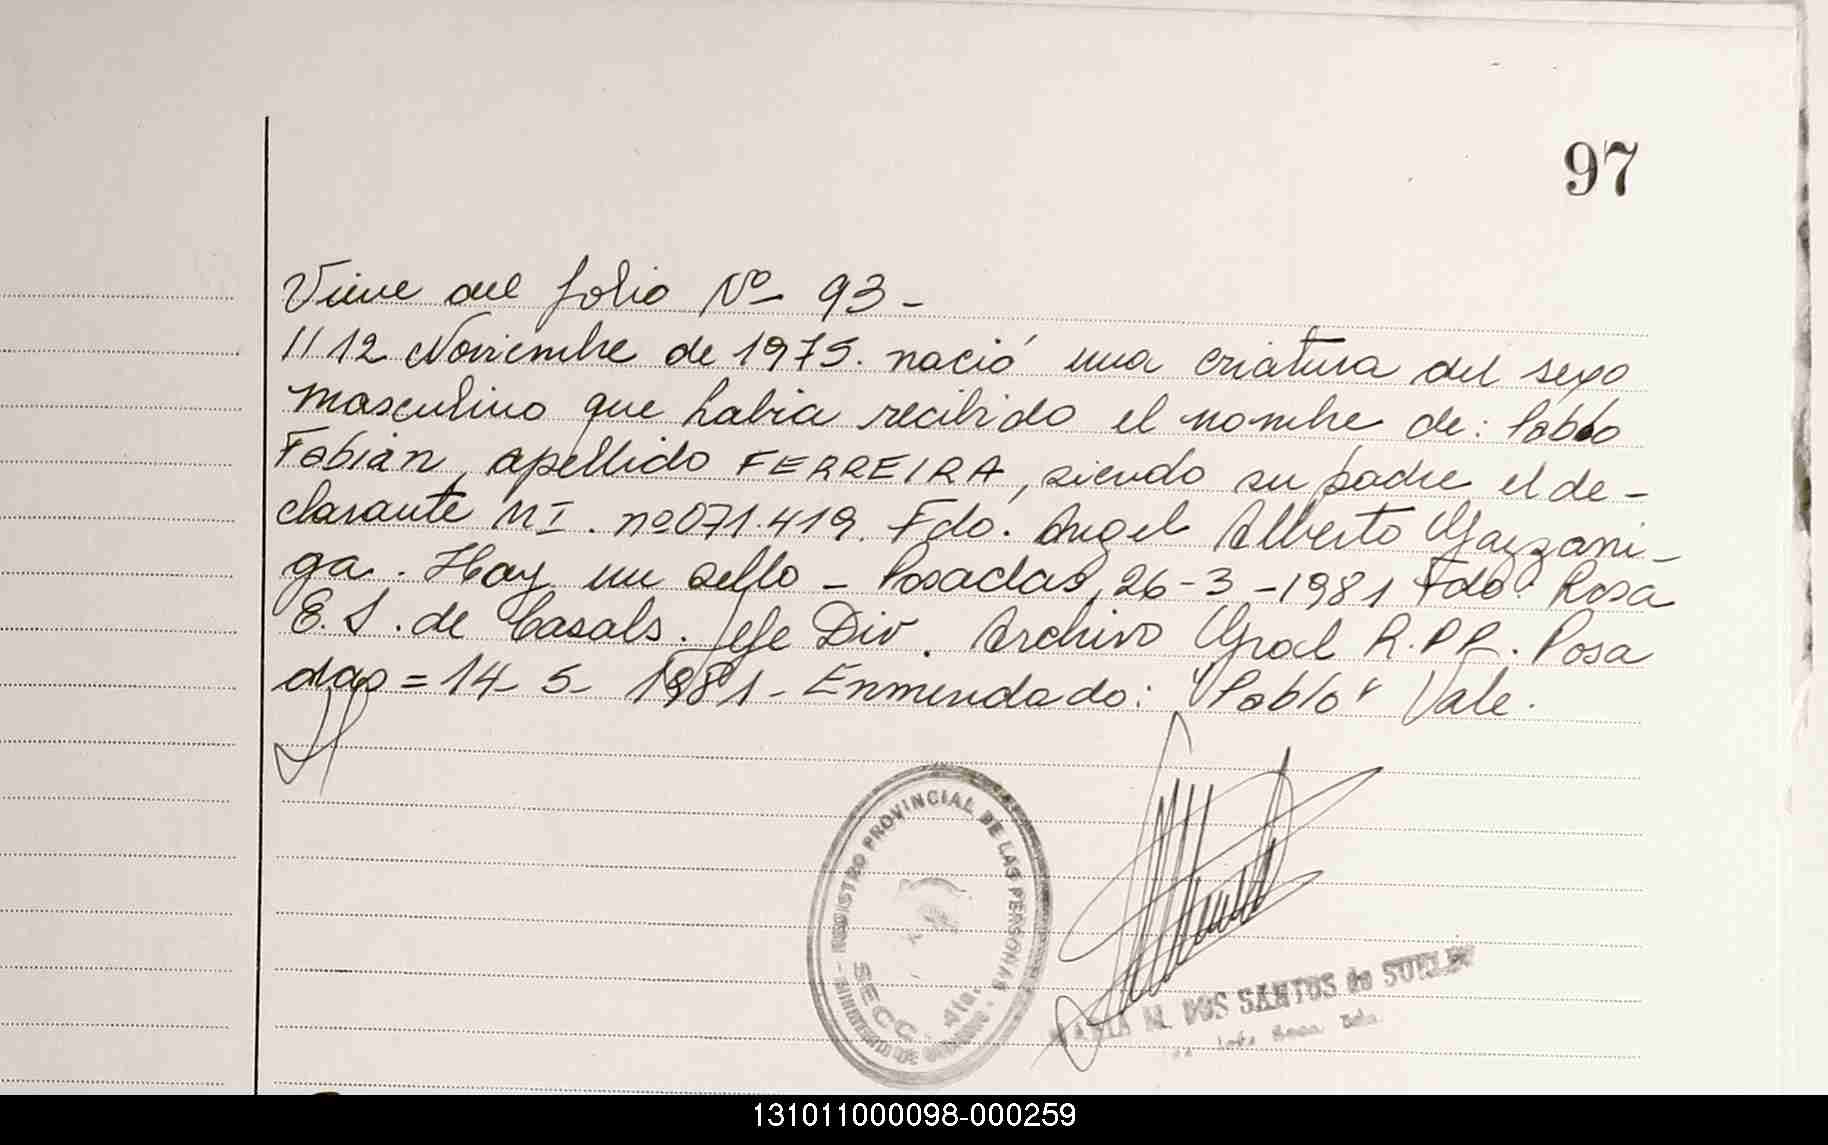 97
Viene del folio Nº- 93-
//12 Noviembre de 1975. nació una criatura del sexo
masculino que habia recibido el nombre de: Pablo
Fabián, apellido FERREIRA, siendo su padre el de-
clarante MI. nº071.419. Fdo. Angel Alberto Gazzani-
ga. Hay un sello - Posadas, 26-3-1981 Fdo. Rosa
E. S. de Casals. Jefe Div. Archivo Gral R.P.P. Posa
das = 14- 5- 1981- Enmendado: "Pablo" Vale.
REGISTRO PROVINCIAL DE LAS PERSONAS
MINISTERIO DE GOBIERNO
SECC. 4ta.
MARIA M. DOS SANTOS de
131011000098-000259